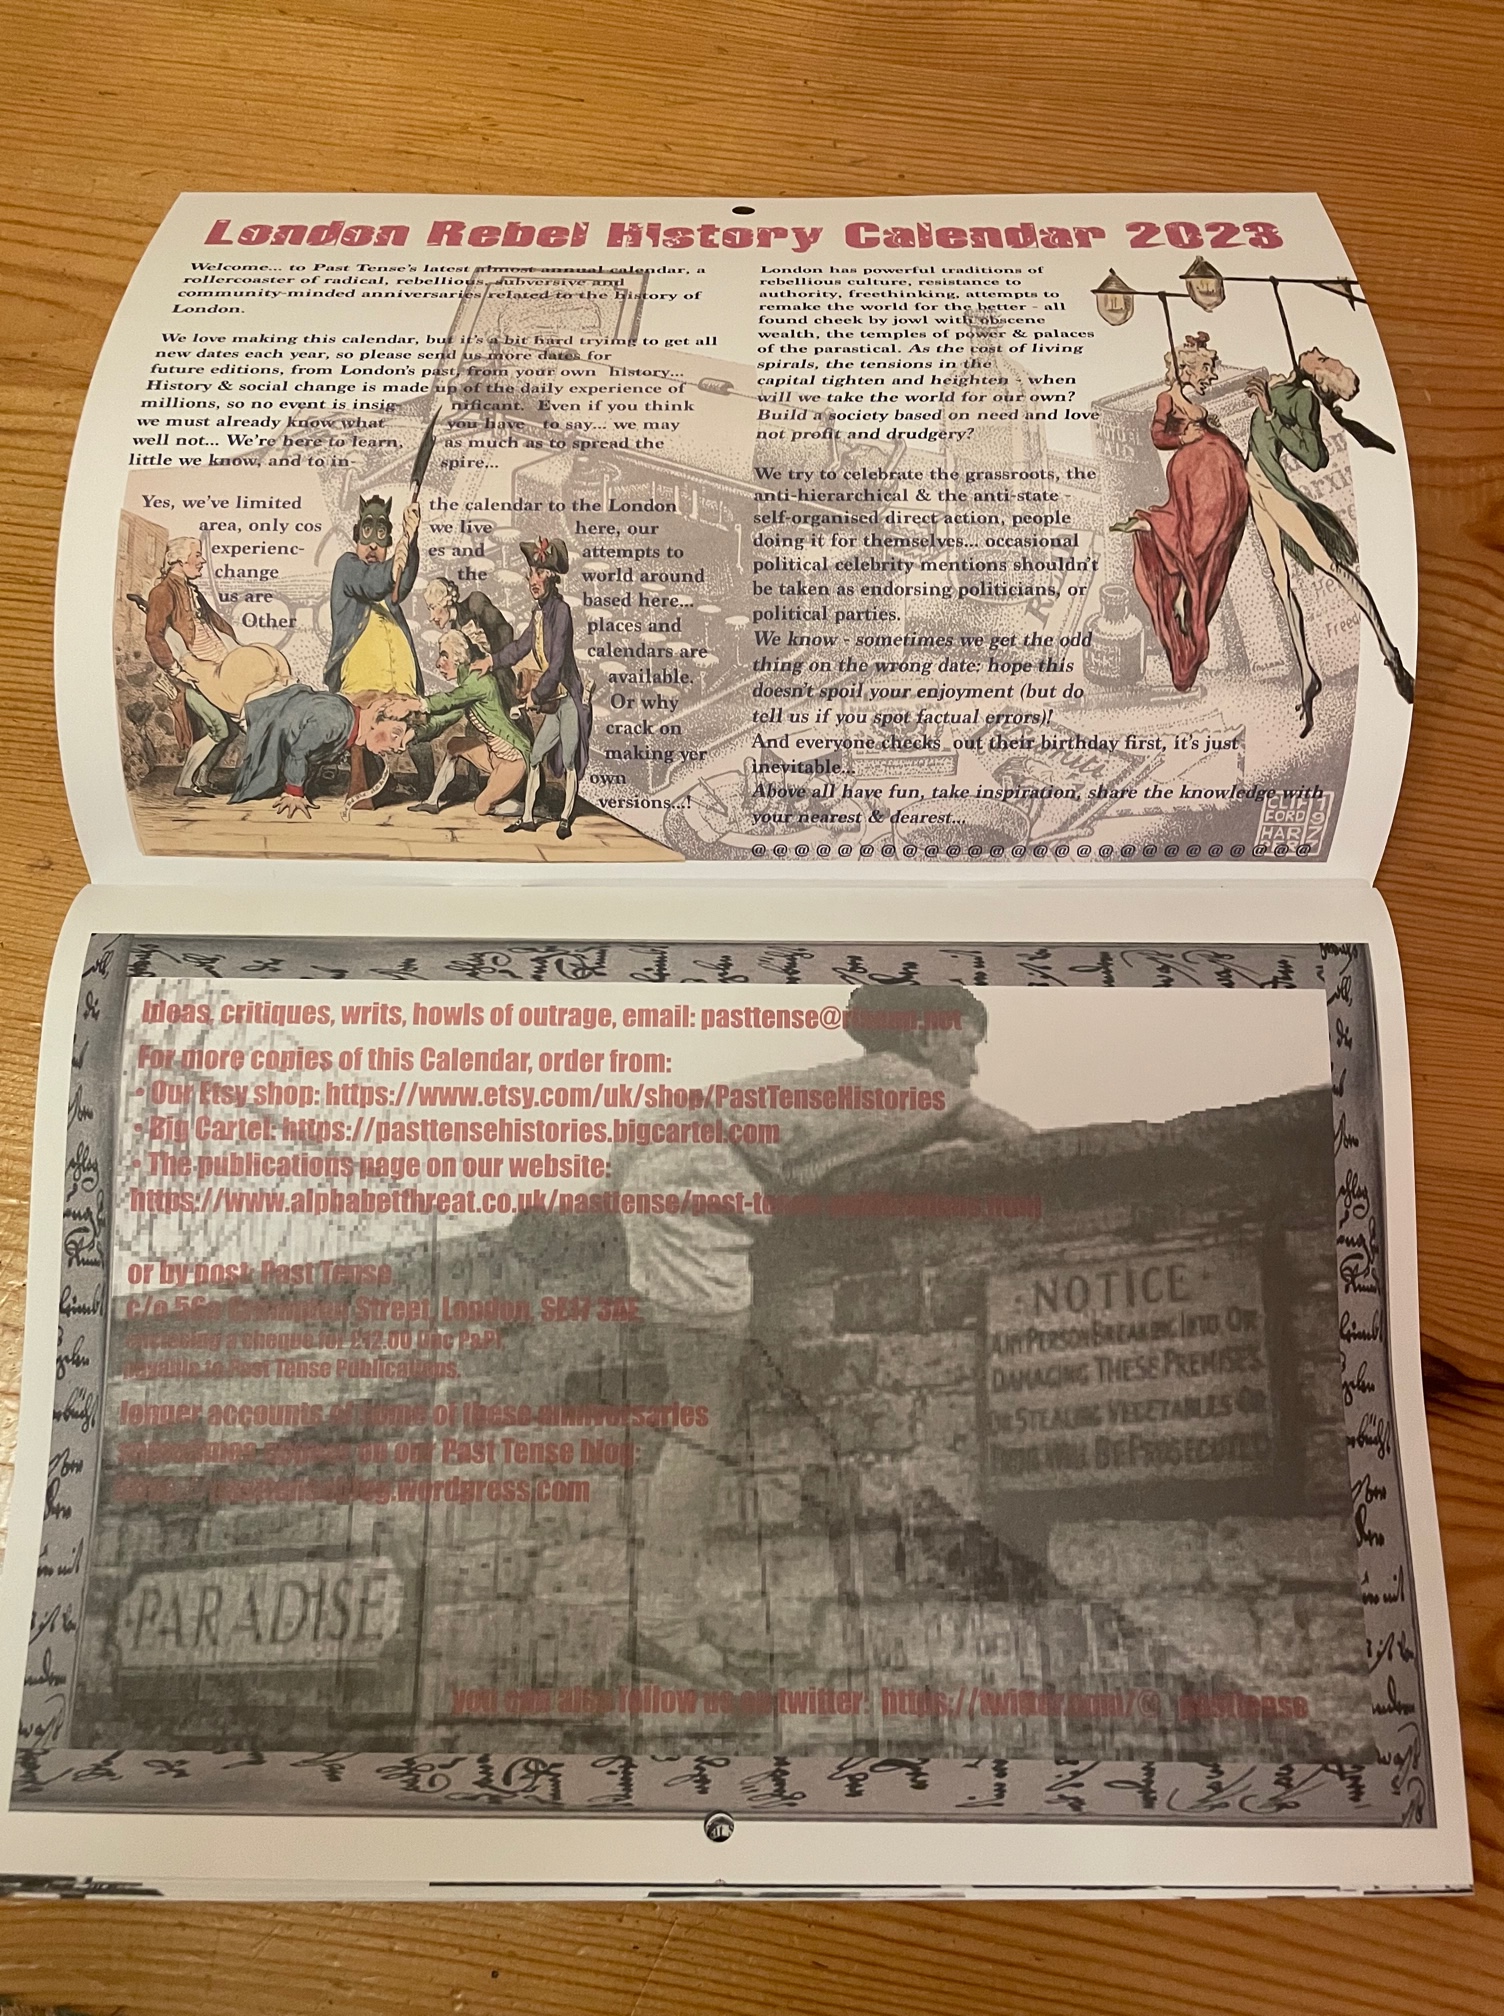 London Rebel History Calendar 2023
Welcome... to Past Tense's latest almost annual calendar, a
rollercoaster of radical, rebellious, subversive and
community-minded anniversaries related to the history of
London.
We love making this calendar, but it's a bit hard trying to get all
new dates each year, so please send us more dates for
future editions, from London's past, from your own history...
History & social change is made up of the daily experience of
millions, so no event is insig- nificant. Even if you think
we must already know what you have to say... we may
well not... We're here to learn, as much as to spread the
little we know, and to in- spire...
Yes, we've limited the calendar to the London
area, only cos we live here, our
experienc- es and attempts to
change the world around
us are based here...
Other places and
calendars are
available.
Or why
crack on
making yer
own
versions...!
London has powerful traditions of
rebellious culture, resistance to
authority, freethinking, attempts to
remake the world for the better - all
found cheek by jowl with obscene
wealth, the temples of power & palaces
of the parastical. As the cost of living
spirals, the tensions in the
capital tighten and heighten - when
will we take the world for our own?
Build a society based on need and love
not profit and drudgery?
We try to celebrate the grassroots, the
anti-hierarchical & the anti-state -
self-organised direct action, people
doing it for themselves... occasional
political celebrity mentions shouldn't
be taken as endorsing politicians, or
political parties.
We know - sometimes we get the odd
thing on the wrong date: hope this
doesn't spoil your enjoyment (but do
tell us if you spot factual errors)!
And everyone checks out their birthday first, it's just
inevitable...
Above all have fun, take inspiration, share the knowledge with
your nearest & dearest...
@ @ @ @ @ @ @ @ @ @ @ @ @ @ @ @ @ @ @ @ @ @ @ @ @ @
CLIF
FORD
HAR
Ideas, critiques, writs, howls of outrage, email: pasttense@
For more copies of this Calendar, order from:
• Our Etsy shop: https://www.etsy.com/uk/shop/PastTenseHistories
• Big Cartel: https://pasttensehistories.bigcartel.com
• The publications page on our website:
https://www.alphabetthreat.co.uk/pasttense/
or by post: Past Tense
c/o 56a Crampton Street, London, SE17 3AE
enclosing a cheque for £12.00 (inc P&P)
payable to Past Tense Publications.
longer accounts of some of these anniversaries
on our Past Tense blog:
.wordpress.com
NOTICE
ANY PERSON BREAKING INTO OR
DAMAGING THESE PREMISES
OR STEALING VEGETABLES OR
WILL BE PROSECUTED
PARADISE
you can also follow us on twitter: https://twitter.com/@_pasttense